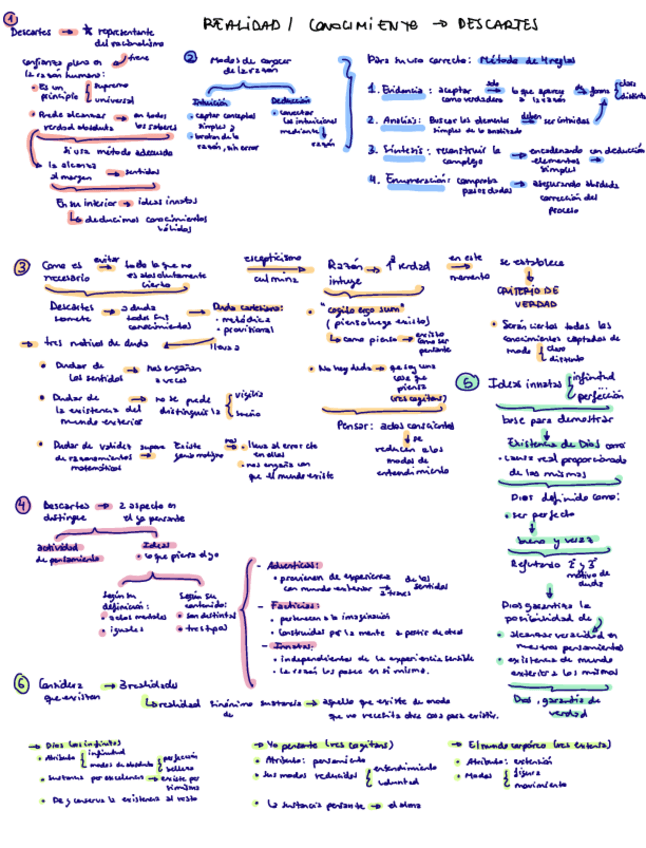 REALIDAD / CONOCIMIENTO → DESCARTES
① Descartes → * representante
del racionalismo
confianza plena en → tiene
la razón humana:
• Es un principio { supremo
universal
• Puede alcanzar → en todos
verdad absoluta los saberes
si usa método adecuado
→ la alcanza
al margen → sentidos
En su interior → ideas innatas
↳ deducimos conocimientos
válidos
② Modos de conocer
de la razón
Intuición
• captar conceptos
simples
• brotan de la
razón, sin error
Deducción
• conectar
las intuiciones
mediante
↓
razón
Para su uso correcto: Método de 4 reglas
1. Evidencia: aceptar solo → lo que aparece → forma { claro
como verdadero a la razón distinto
2. Análisis: Buscar los elementos deben → ser intuidos
simples de lo analizado
3. Síntesis: reconstruir lo → encadenando con deducción
complejo elementos → simples
4. Enumeración: comprobar → asegurando
pasos dados corrección del
proceso
③ Como es evitar → todo lo que no
necesario es absolutamente
cierto
Descartes → a duda → Duda cartesiana:
somete todos sus • metódica
conocimientos • provisional
→ tres motivos de duda ← lleva a
• Dudar de → nos engañan
los sentidos a veces
• Dudar de → no se puede { vigilia
la existencia del distinguir la sueño
mundo exterior
• Dudar de validez supone existe → • lleva al error
de razonamientos → genio maligno en ellos
matemáticos • nos engaña con
que el mundo existe
escepticismo
→
culmina
Razón → 1ª verdad
intuye
• "cogito ergo sum"
(pienso luego existo)
↳ como pienso → existo
como ser
pensante
• No hay duda → que soy una
cosa que
piensa
(res cogitans)
Pensar: actos conscientes
↓ se
reducen a los
modos de
entendimiento
en este
→
momento
se establece
↓
CRITERIO DE
VERDAD
• Serán ciertos todos los
conocimientos captados de
modo { claro
distinto
④ Descartes → 2 aspectos en
distingue el yo pensante
actividad
de pensamiento
Ideas
• lo que piensa el yo
Según su
definición:
• actos mentales
• iguales
Según su
contenido:
• son distintas
• tres tipos
- Adventicias:
• provienen de experiencia de los
con mundo exterior → a través sentidos
- Facticias:
• pertenecen a la imaginación
• construidas por la mente a partir de otras
- Innatas:
• independientes de la experiencia sensible
• La razón las posee en sí misma.
⑤ Ideas innatas { infinitud
perfección
base para demostrar
↓
Existencia de Dios como
• causa real proporcionada
de las mismas
Dios definido como:
• ser perfecto
↓
bueno y veraz
Refutando 2º y 3º
motivo de
duda
↓
Dios garantiza la
posibilidad de
• alcanzar veracidad en
nuestros pensamientos
• existencia de mundo
exterior a los mismos
Dios, garantía de
verdad
⑥ Considera → 3 realidades
que existen
↳ realidad sinónimo sustancia → aquello que existe de modo
de que no necesita otra cosa para existir.
→ Dios (res infinita)
• Atributo { infinitud
modos de absoluto { perfección
belleza
• Sustancia por excelencia → existe por
sí misma
• Da y conserva la existencia al resto
→ Yo pensante (res cogitans)
• Atributo: pensamiento
• Sus modos reducidos { entendimiento
voluntad
• La sustancia pensante → el alma
→ El mundo corpóreo (res extensa)
• Atributo: extensión
• Modos { figura
movimiento